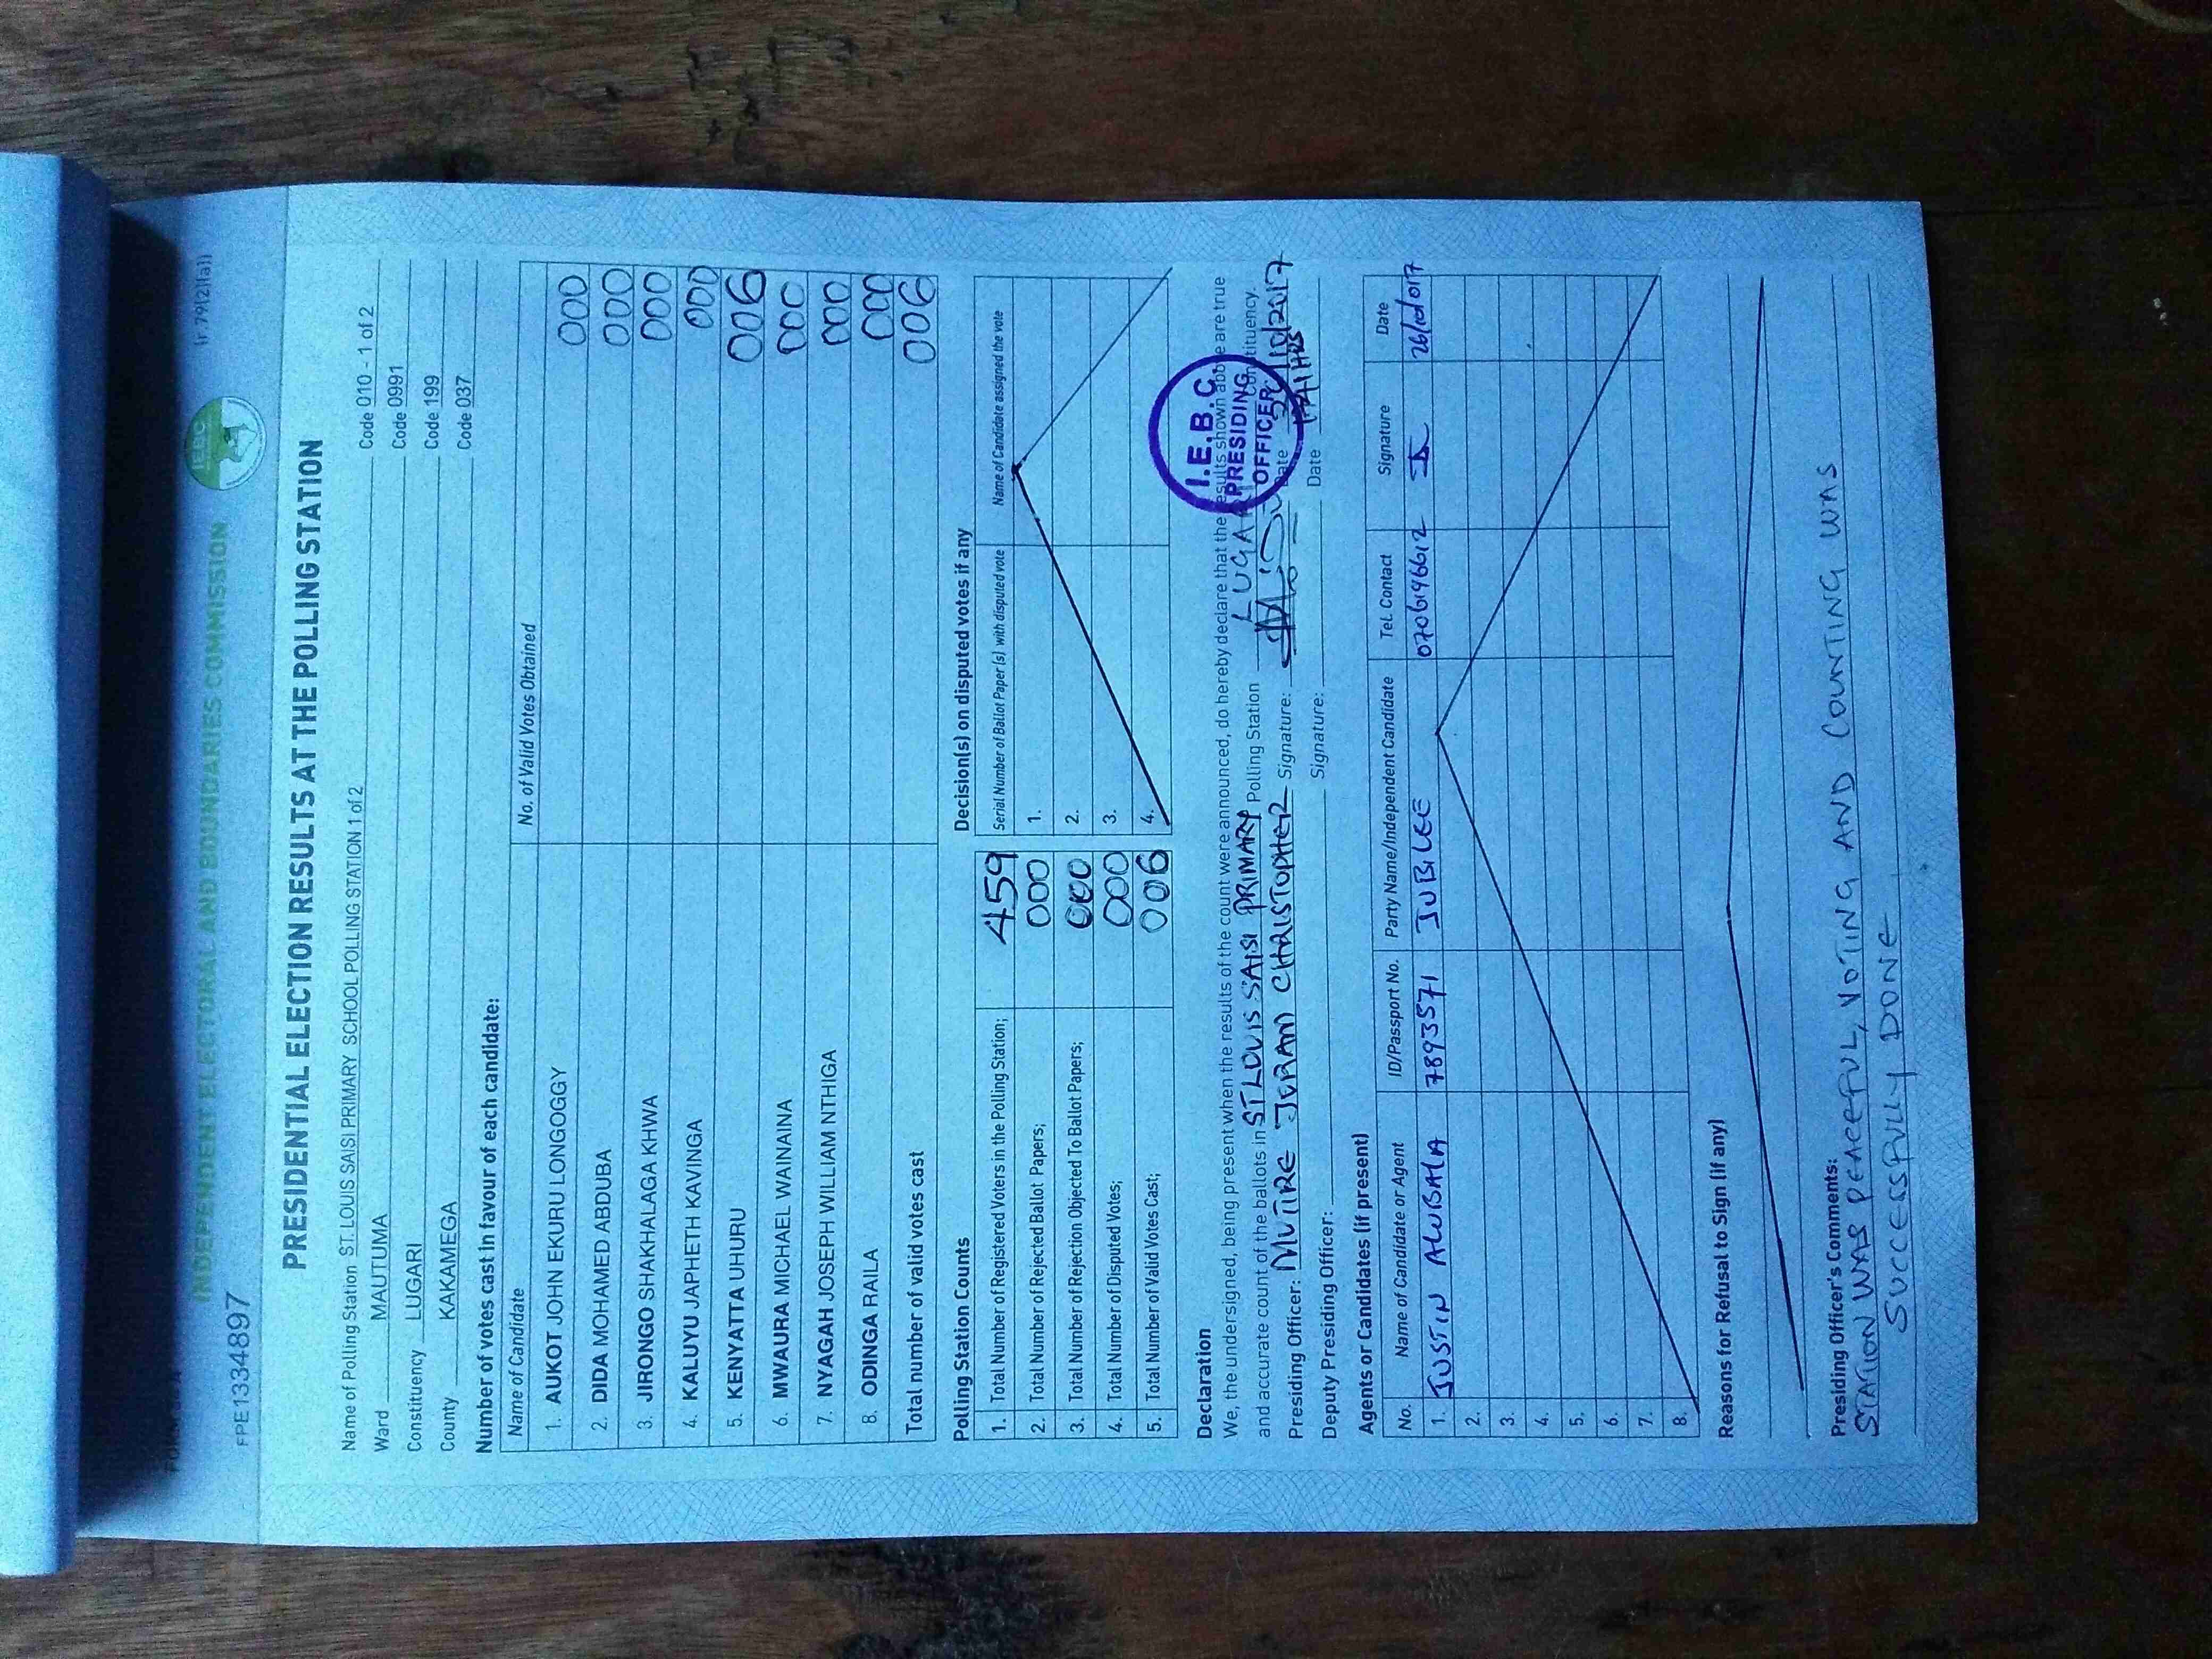 INDEPENDENT ELECTORAL AND BOUNDARIES COMMISSION
IEBC
(r 79(2)(a))
FPE1334897
PRESIDENTIAL ELECTION RESULTS AT THE POLLING STATION
Name of Polling Station ST. LOUIS SAISI PRIMARY SCHOOL POLLING STATION 1 of 2 Code 010 - 1 of 2
Ward MAUTUMA Code 0991
Constituency LUGARI Code 199
County KAKAMEGA Code 037
Number of votes cast in favour of each candidate:
Name of Candidate No. of Valid Votes Obtained
1. AUKOT JOHN EKURU LONGOGGY 000
2. DIDA MOHAMED ABDUBA 000
3. JIRONGO SHAKHALAGA KHWA 000
4. KALUYU JAPHETH KAVINGA 000
5. KENYATTA UHURU 006
6. MWAURA MICHAEL WAINAINA 000
7. NYAGAH JOSEPH WILLIAM NTHIGA 000
8. ODINGA RAILA 000
Total number of valid votes cast 006
Polling Station Counts
1. Total Number of Registered Voters in the Polling Station; 459
2. Total Number of Rejected Ballot Papers; 000
3. Total Number of Rejection Objected To Ballot Papers; 000
4. Total Number of Disputed Votes; 000
5. Total Number of Valid Votes Cast; 006
Decision(s) on disputed votes if any
Serial Number of Ballot Paper(s) with disputed vote Name of Candidate assigned the vote
1.
2.
3.
4.
Declaration
We, the undersigned, being present when the results of the count were announced, do hereby declare that the results shown above are true
and accurate count of the ballots in ST LOUIS SAISI PRIMARY Polling Station LUGARI Constituency.
Presiding Officer: MUTIRE JORAM CHRISTOPHER Signature: Date 26/10/2017
1741HRS
Deputy Presiding Officer: Signature: Date
I.E.B.C
PRESIDING
OFFICER
Agents or Candidates (if present)
No. Name of Candidate or Agent ID/Passport No. Party Name/Independent Candidate Tel. Contact Signature Date
1. JUSTIN ALUBALA 7893571 JUBILEE 0706196612 26/10/017
2.
3.
4.
5.
6.
7.
8.
Reasons for Refusal to Sign (if any)
Presiding Officer's Comments:
STATION WAS PEACEFUL, VOTING AND COUNTING WAS
SUCCESSFULLY DONE